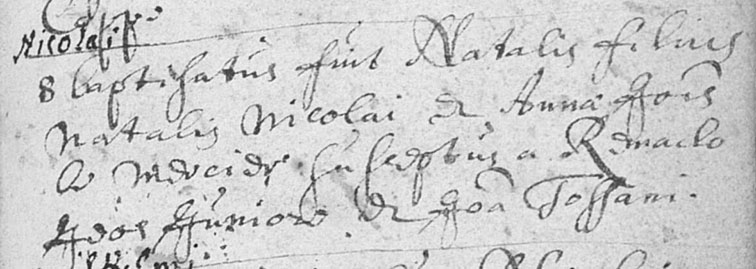 Nicolai
8 baptisatus fuit Natalis filius
Natalis Nicolai & Anna Jois
le mercier susceptus a Remaclo
Jois Juniore & Joa Tossani.